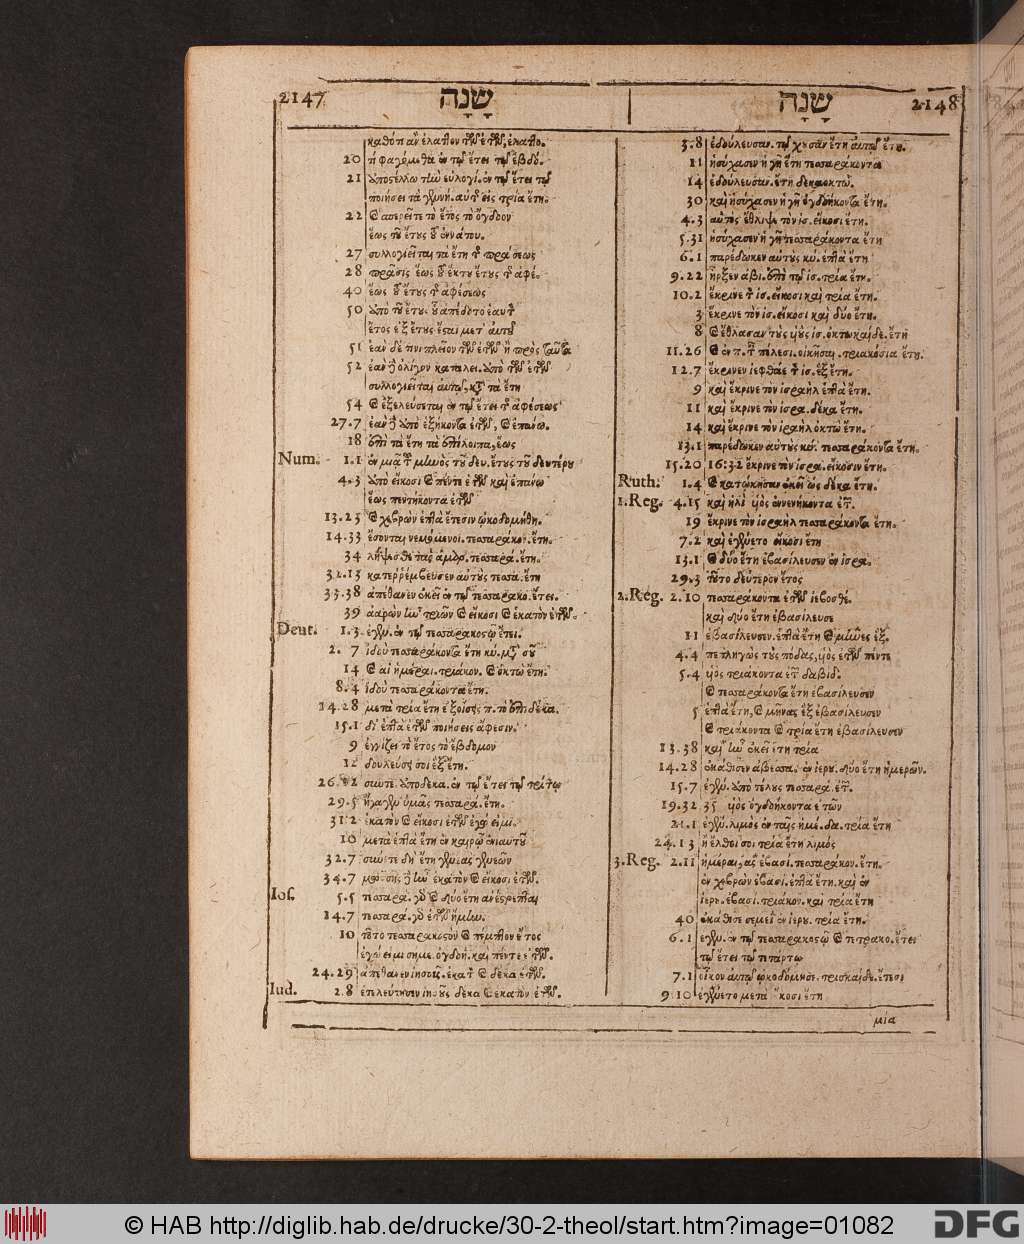 2147 שָׁנָה
καθότι ἂν ἔλαττον τῶν ἐτῶν, ἐλαττο.
20 τί φαγόμεθα ἐν τῷ ἔτει τῷ ἑβδό.
21 ἀποστέλλω τὴν εὐλογί. ἐν τῷ ἔτει τῷ
ποιήσει τὰ γεννή. αὐτῆς εἰς τρία ἔτη.
22 σπερεῖτε τὸ ἔτος τὸ ὄγδοον
ἕως τοῦ ἔτους τοῦ ἐννάτου.
27 συλλογιεῖται τὰ ἔτη τῆς πράσεως
28 πράσις ἕως τοῦ ἕκτου ἔτους τῆς ἀφέ.
40 ἕως τοῦ ἔτους τῆς ἀφέσεως
50 ἀπὸ τοῦ ἔτους οὗ ἀπέδοτο ἑαυτὸν
ἔτος ἐξ ἔτους ἔσται μετ' αὐτοῦ
51 ἐὰν δέ τινι πλεῖον τῶν ἐτῶν ᾖ πρὸς ταῦτα
52 ἐὰν δὲ ὀλίγον καταλει. ἀπὸ τῶν ἐτῶν
συλλογιεῖται αὐτῷ, κατὰ τὰ ἔτη
54 καὶ ἐξελεύσεται ἐν τῷ ἔτει τῆς ἀφέσεως
27.7 ἐὰν δὲ ἀπὸ ἑξήκοντα ἐτῶν, καὶ ἐπάνω.
18 ἐπὶ τὰ ἔτη τὰ ἐπίλοιπα, ἕως
Num. 1.1 ἐν μιᾷ τοῦ μηνὸς τοῦ δευ. ἔτους τοῦ δευτέρου
4.3 ἀπὸ εἴκοσι καὶ πέντε ἐτῶν καὶ ἐπάνω
ἕως πεντήκοντα ἐτῶν
13.23 καὶ χεβρὼν ἑπτὰ ἔτεσιν ᾠκοδομήθη.
14.33 ἔσονται νεμόμενοι. τεσσαράκο. ἔτη.
34 λήψεσθε τὰς ἁμαρ. τεσσαρά. ἔτη.
32.13 κατερρέμβευσεν αὐτοὺς τεσσα. ἔτη
33.38 ἀπέθανεν ἐκεῖ ἐν τῷ τεσσαρακο. ἔτει.
39 ἀαρὼν ἦν τριῶν καὶ εἴκοσι καὶ ἑκατὸν ἐτῶν.
Deut. 1.3 ἐγεν. ἐν τῷ τεσσαρακοστῷ ἔτει.
2. 7 ἰδοὺ τεσσαράκοντα ἔτη κύ. μετὰ σοῦ
14 καὶ αἱ ἡμέραι. τριάκον. καὶ ὀκτὼ ἔτη.
8.4 ἰδοὺ τεσσαράκοντα ἔτη.
14.28 μετὰ τρία ἔτη ἐξοίσεις π. τὸ ἐπιδέκα.
15.1 δι' ἑπτὰ ἐτῶν ποιήσεις ἄφεσιν.
9 ἐγγίζει τὸ ἔτος τὸ ἕβδομον
12 δουλεύσει σοι ἓξ ἔτη.
26.12 ἀποδεκα. ἐν τῷ ἔτει τῷ τρίτῳ
29.5 ἤγαγεν ὑμᾶς τεσσαρά. ἔτη.
31.2 ἑκατὸν καὶ εἴκοσι ἐτῶν ἐγώ εἰμι.
10 μετὰ ἑπτὰ ἔτη ἐν καιρῷ ἐνιαυτοῦ
32.7 σύνετε δὴ ἔτη γενεᾶς γενεῶν
34.7 μωσῆς δὲ ἦν ἑκατὸν καὶ εἴκοσι ἐτῶν.
Ios. 5.5 τεσσαρά. γὸ καὶ δύο ἔτη ἀνέστρεπται
14.7 τεσσαρά. γὸ ἐτῶν ἤμην.
10 τοῦτο τεσσαρακοστὸν καὶ πέμπτον ἔτος
ἐγώ εἰμι σήμε. ὀγδοή. καὶ πέντε ἐτῶν.
24.29 ἀπέθανεν ἰησοῦς. ἑκατ. καὶ δέκα ἐτῶν.
Iud. 2.8 ἐτελεύτησεν ἰησοῦς δέκα καὶ ἑκατὸν ἐτῶν.
שָׁנָה 2148
3.8 ἐδούλευσαν. τῷ χουσὰν ἔτη ὀκτώ ἔτη.
11 ἡσύχασεν ἡ γῆ ἔτη τεσσαράκοντα
14 ἐδούλευσαν. ἔτη δεκαοκτώ.
30 καὶ ἡσύχασεν ἡ γῆ ὀγδοήκοντα ἔτη.
4.3 αὐτὸς ἔθλιψε τὸν ἰσ. εἴκοσι ἔτη.
5.31 ἡσύχασεν ἡ γῆ τεσσαράκοντα ἔτη
6.1 παρέδωκεν αὐτοὺς κύ. ἑπτὰ ἔτη
9.22 ἦρξεν ἀβι. ἐπὶ τῷ ἰσ. τρία ἔτη.
10.2 ἔκρινε τὸν ἰσ. εἴκοσι καὶ τρία ἔτη.
3 ἔκρινε τὸν ἰσ. εἴκοσι καὶ δύο ἔτη.
8 καὶ ἔθλασαν τοὺς υἱοὺς ἰσ. ὀκτωκαίδε. ἔτη
11.26 καὶ ἐν π. τ. πόλεσι. οἰκῆσαι. τριακόσια ἔτη.
12.7 ἔκρινεν ἰεφθάε τὸν ἰσ. ἓξ ἔτη.
9 καὶ ἔκρινε τὸν ἰσραὴλ ἑπτὰ ἔτη.
11 καὶ ἔκρινε τὸν ἰσρα. δέκα ἔτη.
14 καὶ ἔκρινε τὸν ἰσραὴλ ὀκτὼ ἔτη.
13.1 παρέδωκεν αὐτοὺς κύ. τεσσαράκοντα ἔτη.
15.20 16.32 ἔκρινε τὸν ἰσρα. εἴκοσιν ἔτη.
Ruth. 1.4 καὶ κατῴκησαν ἐκεῖ ὡς δέκα ἔτη.
1.Reg. 4.15 καὶ ἡλὶ υἱὸς ἐννενήκοντα ἐτ.
19 ἔκρινε τὸν ἰσραὴλ τεσσαράκοντα ἔτη.
7.2 καὶ ἐγένετο εἴκοσι ἔτη
13.1 καὶ δύο ἔτη ἐβασίλευσεν ἐν ἰσρα.
29.3 τοῦτο δεύτερον ἔτος
2.Reg. 2.10 τεσσαράκοντα ἐτῶν ἰεβοσθέ.
καὶ δύο ἔτη ἐβασίλευσε
11 ἐβασίλευσεν. ἑπτὰ ἔτη καὶ μῆνες ἕξ.
4.4 πεπληγὼς τοὺς πόδας, υἱὸς ἐτῶν πέντε
5.4 υἱὸς τριάκοντα ἐτ. δαβίδ.
καὶ τεσσαράκοντα ἔτη ἐβασίλευσεν
5 ἑπτὰ ἔτη, καὶ μῆνας ἓξ ἐβασίλευσεν
καὶ τριάκοντα καὶ τρία ἔτη ἐβασίλευσεν
13.38 καὶ ἦν ἐκεῖ ἔτη τρία
14.28 ἐκάθισεν ἀβεσσα. ἐν ἱερου. δύο ἔτη ἡμερῶν.
15.7 ἐγέν. ἀπὸ τέλους τεσσαρά. ἐτ.
19.32 35 υἱὸς ὀγδοήκοντα ἐτῶν
21.1 ἐγέν. λιμὸς ἐν ταῖς ἡμέ. δα. τρία ἔτη
24.13 ἢ ἔλθῃ σοι τρία ἔτη λιμός
3.Reg. 2.11 ἡμέραι, ἃς ἐβασί. τεσσαράκον. ἔτη.
ἐν χεβρὼν ἐβασί. ἑπτὰ ἔτη. καὶ ἐν
ἱερου. ἐβασι. τριάκον. καὶ τρία ἔτη
40 ἐκάθισε σεμεῒ ἐν ἱερου. τρία ἔτη.
6.1 ἐγέν. ἐν τῷ τεσσαρακοστῷ καὶ τετρακο. ἔτει
τῷ ἔτει τῷ τετάρτῳ
7.1 οἶκον αὐτῷ ᾠκοδόμησε. τρισκαίδε. ἔτεσι
9.10 ἐγένετο μετὰ εἴκοσι ἔτη
μία
© HAB http://diglib.hab.de/drucke/30-2-theol/start.htm?image=01082 DFG